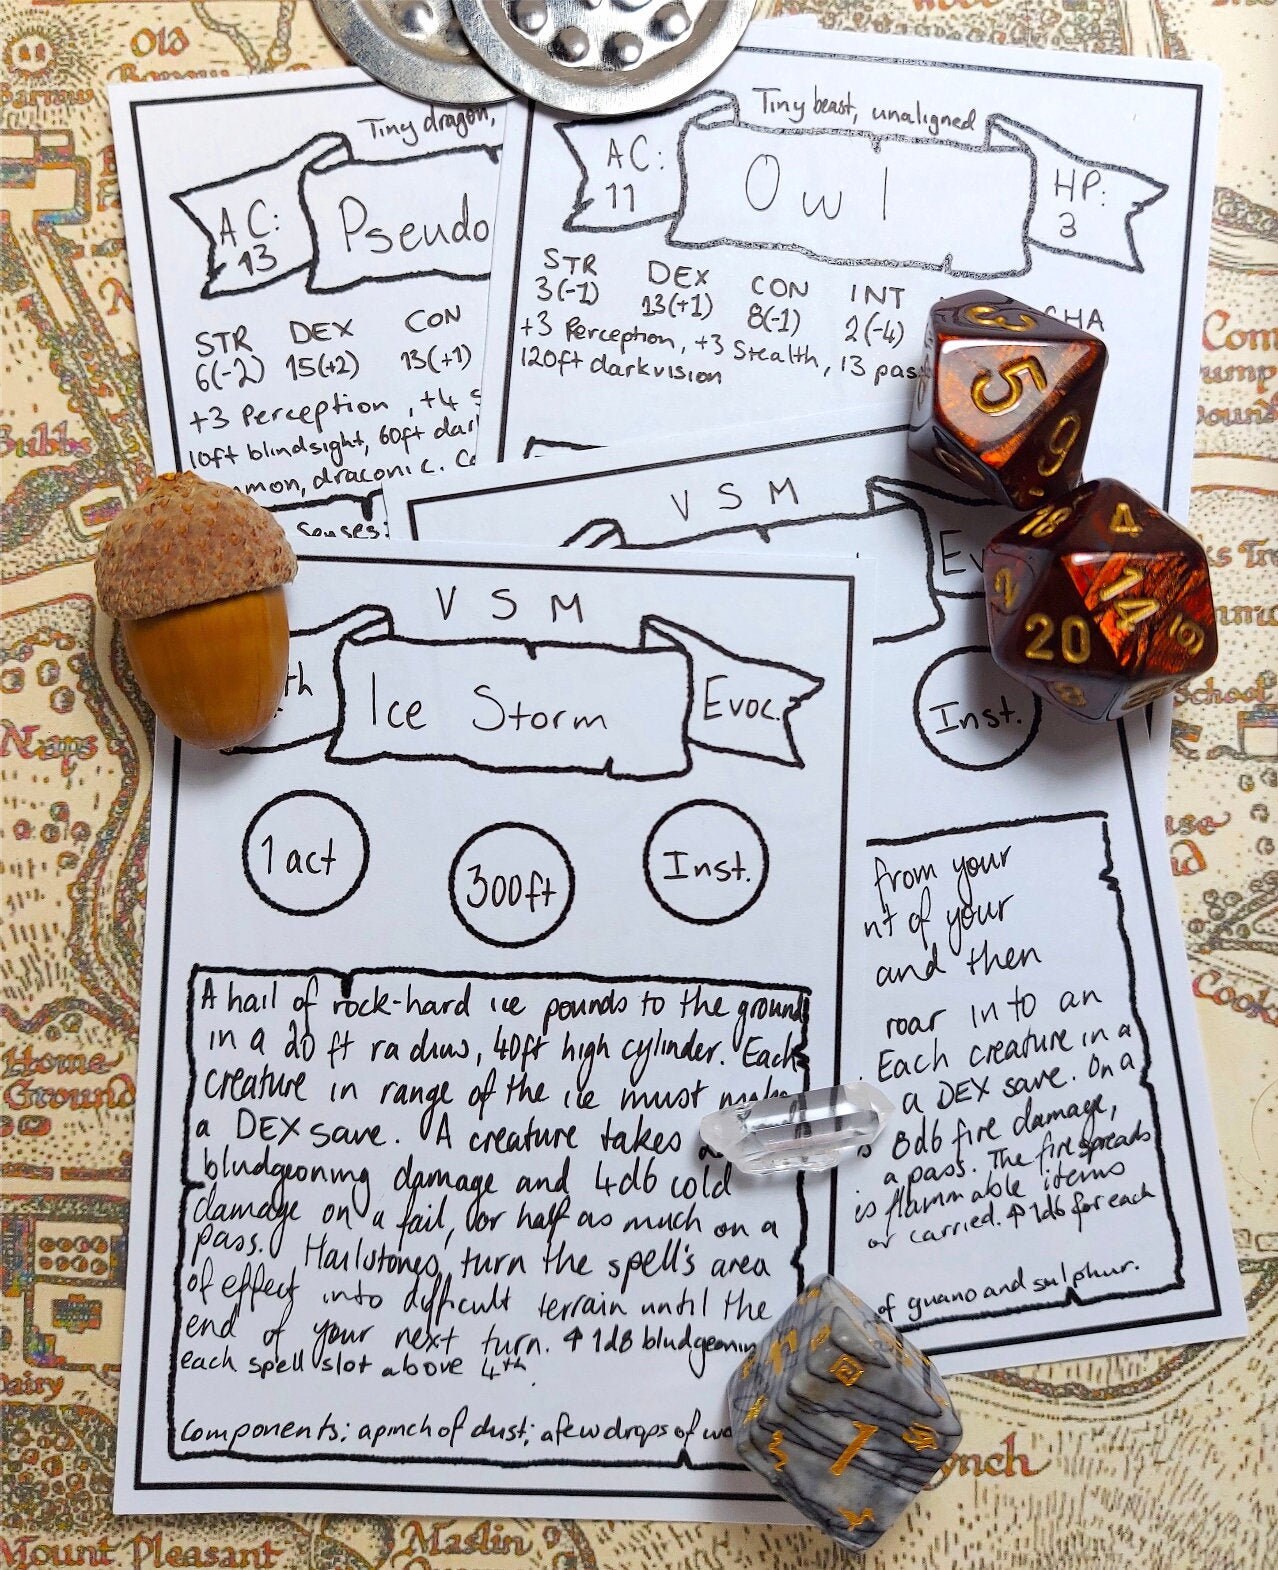 Old
Barrow
Tiny dragon,
AC:
13
Pseudo
STR DEX CON
6(-2) 15(+2) 13(+1)
+3 Perception, +4 S
10ft blindsight, 60ft dar
mmon, draconic. Co
Senses:
Tiny beast, unaligned
AC:
11
Owl
HP:
3
STR DEX CON INT CHA
3(-1) 13(+1) 8(-1) 2(-4)
+3 Perception, +3 Stealth, 13 pas
120ft darkvision
3
5
9
18
4
2
14
20
V S M
Ev
Inst.
from your
nt of your
and then
roar into an
Each creature in a
a DEX save. On a
8d6 fire damage,
a pass. The fire spreads
is flammable items
or carried. ↑ 1d6 for each
of guano and sulphur.
V S M
th
Ice Storm
Evoc.
1 act
300ft
Inst.
A hail of rock-hard ice pounds to the ground
in a 20 ft radius, 40ft high cylinder. Each
creature in range of the ice must make
a DEX save. A creature takes
bludgeoning damage and 4d6 cold
damage on a fail, or half as much on a
pass. Hailstones turn the spell's area
of effect into difficult terrain until the
end of your next turn. ↑ 1d8 bludgeonin
each spell slot above 4th.
Components: a pinch of dust; a few drops of wa
1
Home
Ground
Mount Pleasant
Maslin